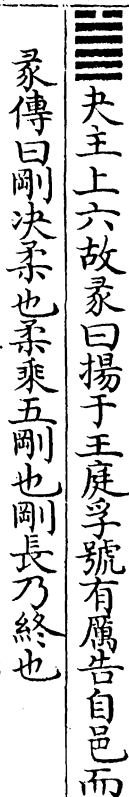 ䷪夬主上六故彖曰揚于王庭孚號有厲告自邑而
彖傳曰剛决柔也柔乘五剛也剛長乃終也